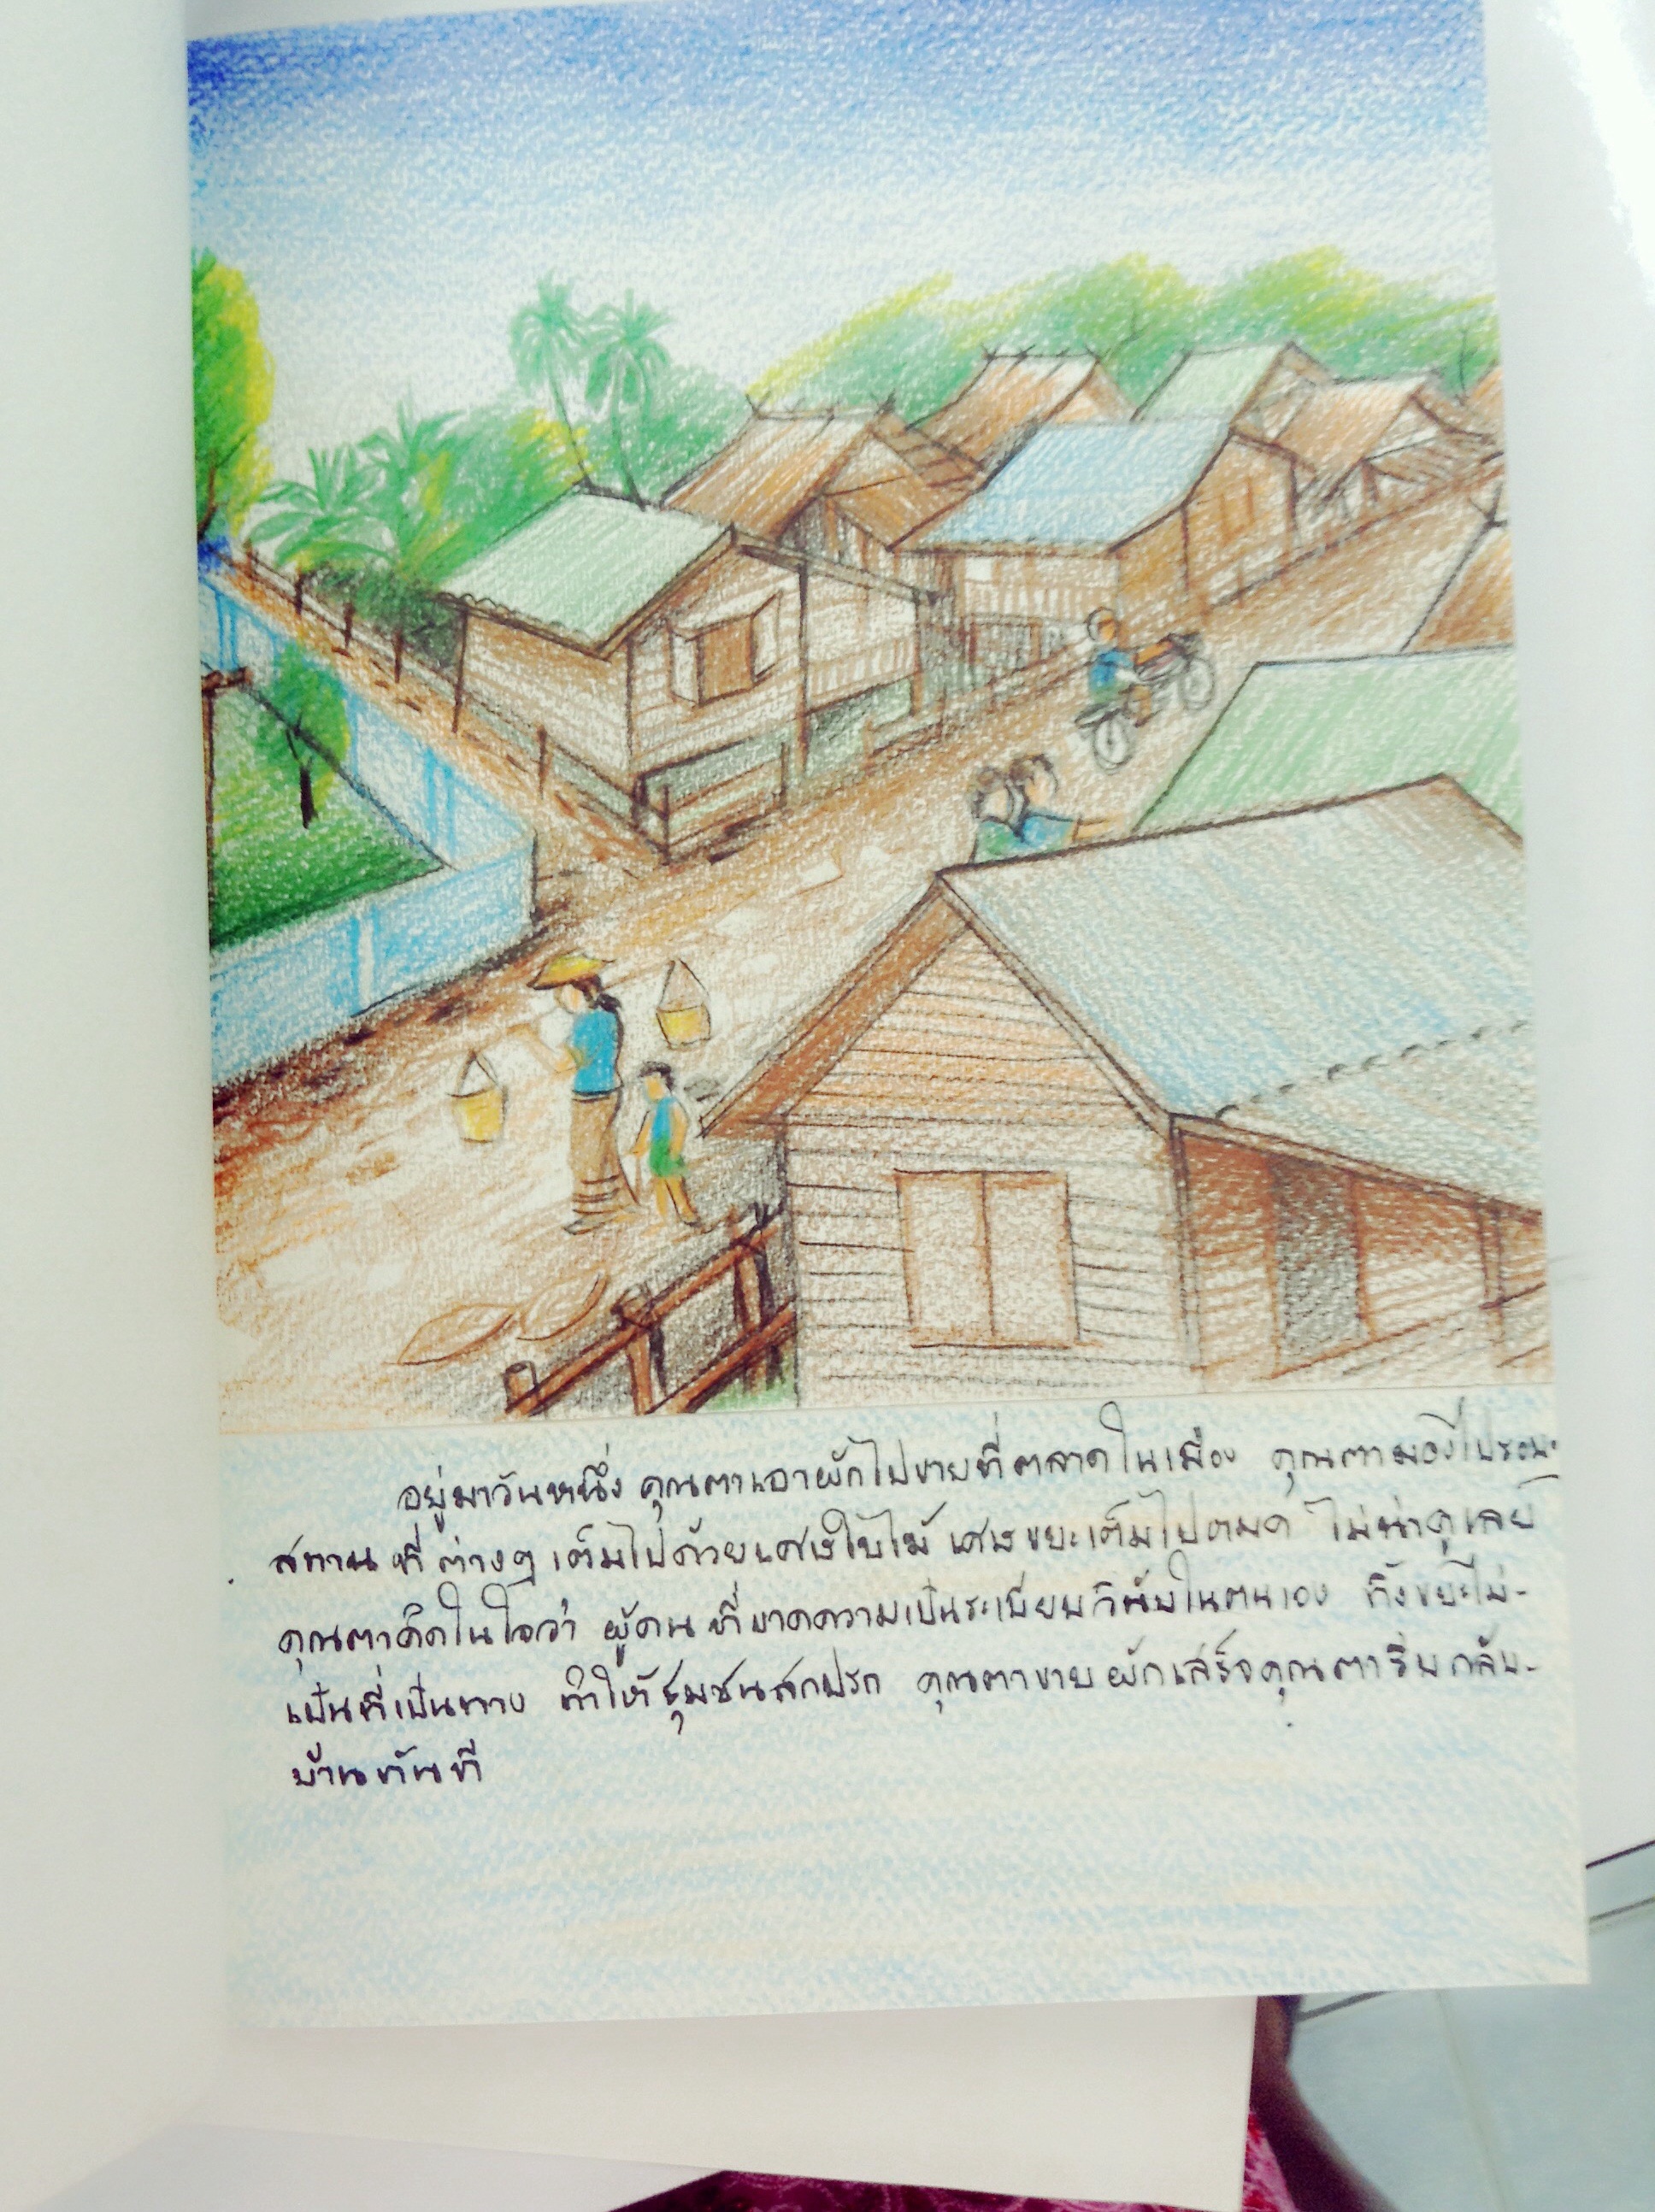 อยู่มาวันหนึ่ง คุณตาเอาผักไปขายที่ตลาดในเมือง คุณตามองไปรอบๆ
สถานที่ต่างๆ เต็มไปด้วยเศษใบไม้ เศษขยะเต็มไปหมด ไม่น่าดูเลย
คุณตาคิดในใจว่า ผู้คนที่ขาดความเป็นระเบียบวินัยในตนเอง ทิ้งขยะไม่-
เป็นที่เป็นทาง ทำให้ชุมชนสกปรก คุณตาขายผักเสร็จคุณตารีบกลับ-
บ้านทันที